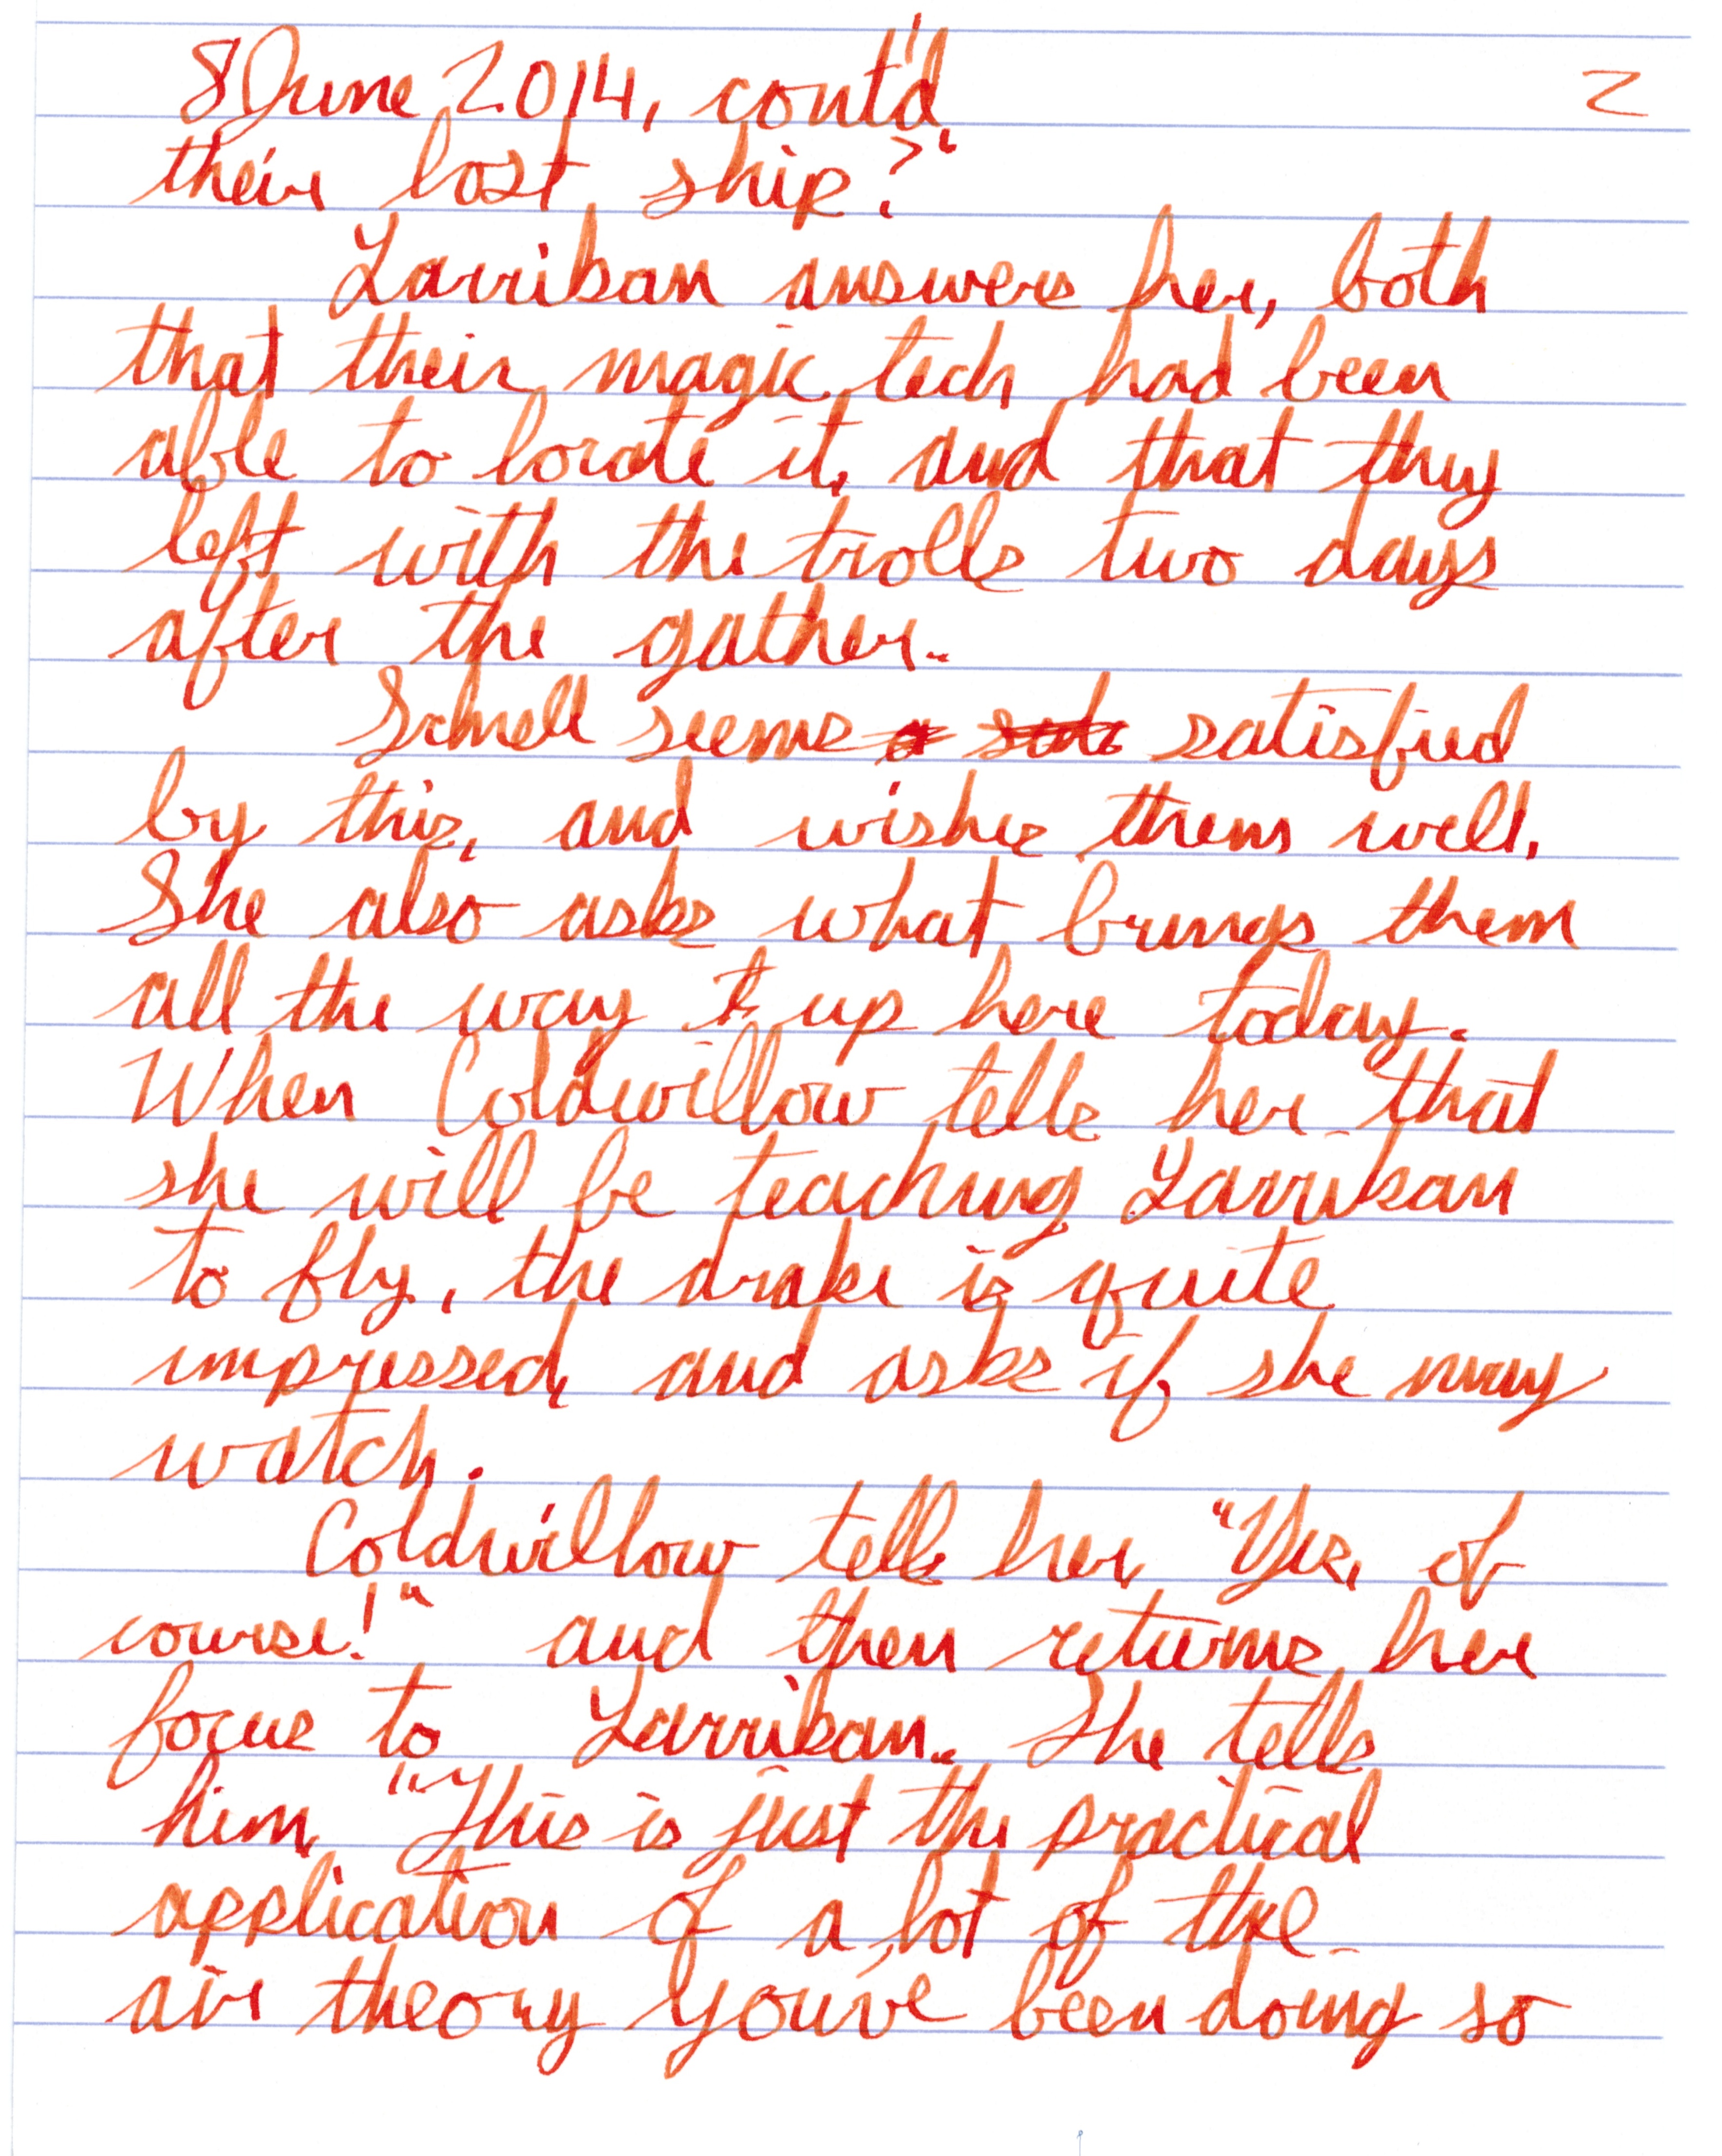 8 June 2014, cont'd. 2
their lost ship?"
Larrikan answers her, both
that their magic tech had been
able to locate it, and that they
left with the trolls two days
after the gather.
seems satisfied
by this, and wishes them well.
She also asks what brings them
all the way t up here today.
When Coldwillow tells her that
she will be teaching Larrikan
to fly, the drake is quite
impressed, and asks if she may
watch.
Coldwillow tells her, "Yes, of
course!" and then returns her
focus to Larrikan. She tells
him, "This is just the practical
application of a lot of the
air theory you've been doing so